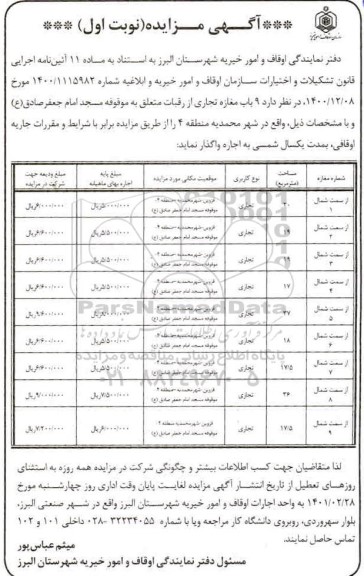 ***آگـهـی مـــزایـده(نوبت اول) ***
دفتر نمایندگی اوقاف و امور خیریه شهرستان البرز به استناد به ماده ۱۱ آئین‌نامه اجرایی
قانون تشکیلات و اختیارات سازمان اوقاف و امور خیریه و ابلاغیه شماره ۱۴۰۰/۱۱۱۵۹۸۲ مورخ
۱۴۰۰/۱۲/۰۸، در نظر دارد ۹ باب مغازه تجاری از رقبات متعلق به موقوفه مسجد امام جعفرصادق(ع)
و با مشخصات ذیل، واقع در شهر محمدیه منطقه ۴ را از طریق مزایده برابر با شرایط و مقررات جاریه
اوقافی، بمدت یکسال شمسی به اجاره واگذار نماید:
شماره مغازه مساحت (مترمربع) نوع کاربری موقعیت مکانی مورد مزایده مبلغ پایه اجاره بهای ماهیانه مبلغ ودیعه جهت شرکت در مزایده
از سمت شمال ۱ تجاری قزوین-شهرمحمدیه-منطقه ۴ موقوفه مسجد امام جعفر صادق (ع)
از سمت شمال ۲ تجاری قزوین-شهرمحمدیه-منطقه ۴ موقوفه مسجد امام جعفر صادق (ع)
از سمت شمال ۳ تجاری قزوین-شهرمحمدیه-منطقه ۴ موقوفه مسجد امام جعفر صادق (ع)
از سمت شمال ۴ ۱۷ تجاری قزوین-شهرمحمدیه-منطقه ۴ موقوفه مسجد امام جعفر صادق (ع)
از سمت شمال ۵ تجاری قزوین-شهرمحمدیه-منطقه ۴ موقوفه مسجد امام جعفر صادق (ع)
از سمت شمال ۶ ۱۸ تجاری قزوین-شهرمحمدیه-منطقه ۴ موقوفه مسجد امام جعفر صادق (ع)
از سمت شمال ۷ ۱۷/۵ تجاری قزوین-شهرمحمدیه-منطقه ۴ موقوفه مسجد امام جعفر صادق (ع)
از سمت شمال ۸ ۳۶ تجاری قزوین-شهرمحمدیه-منطقه ۴ موقوفه مسجد امام جعفر صادق (ع)
از سمت شمال ۹ ۱۷/۵ تجاری قزوین-شهرمحمدیه-منطقه ۴ موقوفه مسجد امام جعفر صادق (ع) ۶/۰۰۰/۰۰۰ریال ۷/۲۰۰/۰۰۰ریال
ParsNamadData
پایگاه اطلاع رسانی مناقصه و مزایده
۰۲۱-۸۸۳۴۹۶۷۰-۵
لذا متقاضیان جهت کسب اطلاعات بیشتر و چگونگی شرکت در مزایده همه روزه به استثنای
روزهای تعطیل از تاریخ انتشار آگهی مزایده لغایت پایان وقت اداری روز چهارشنبه مورخ
۱۴۰۱/۰۲/۲۸ به واحد اجارات اوقاف و امور خیریه شهرستان البرز واقع در شهر صنعتی البرز،
بلوار سهروردی، روبروی دانشگاه کار مراجعه ویا با شماره ۳۲۲۳۴۰۵۵-۰۲۸ داخلی ۱۰۱ و ۱۰۲
تماس حاصل نمایند.
میثم عباس‌پور
مسئول دفتر نمایندگی اوقاف و امور خیریه شهرستان البرز